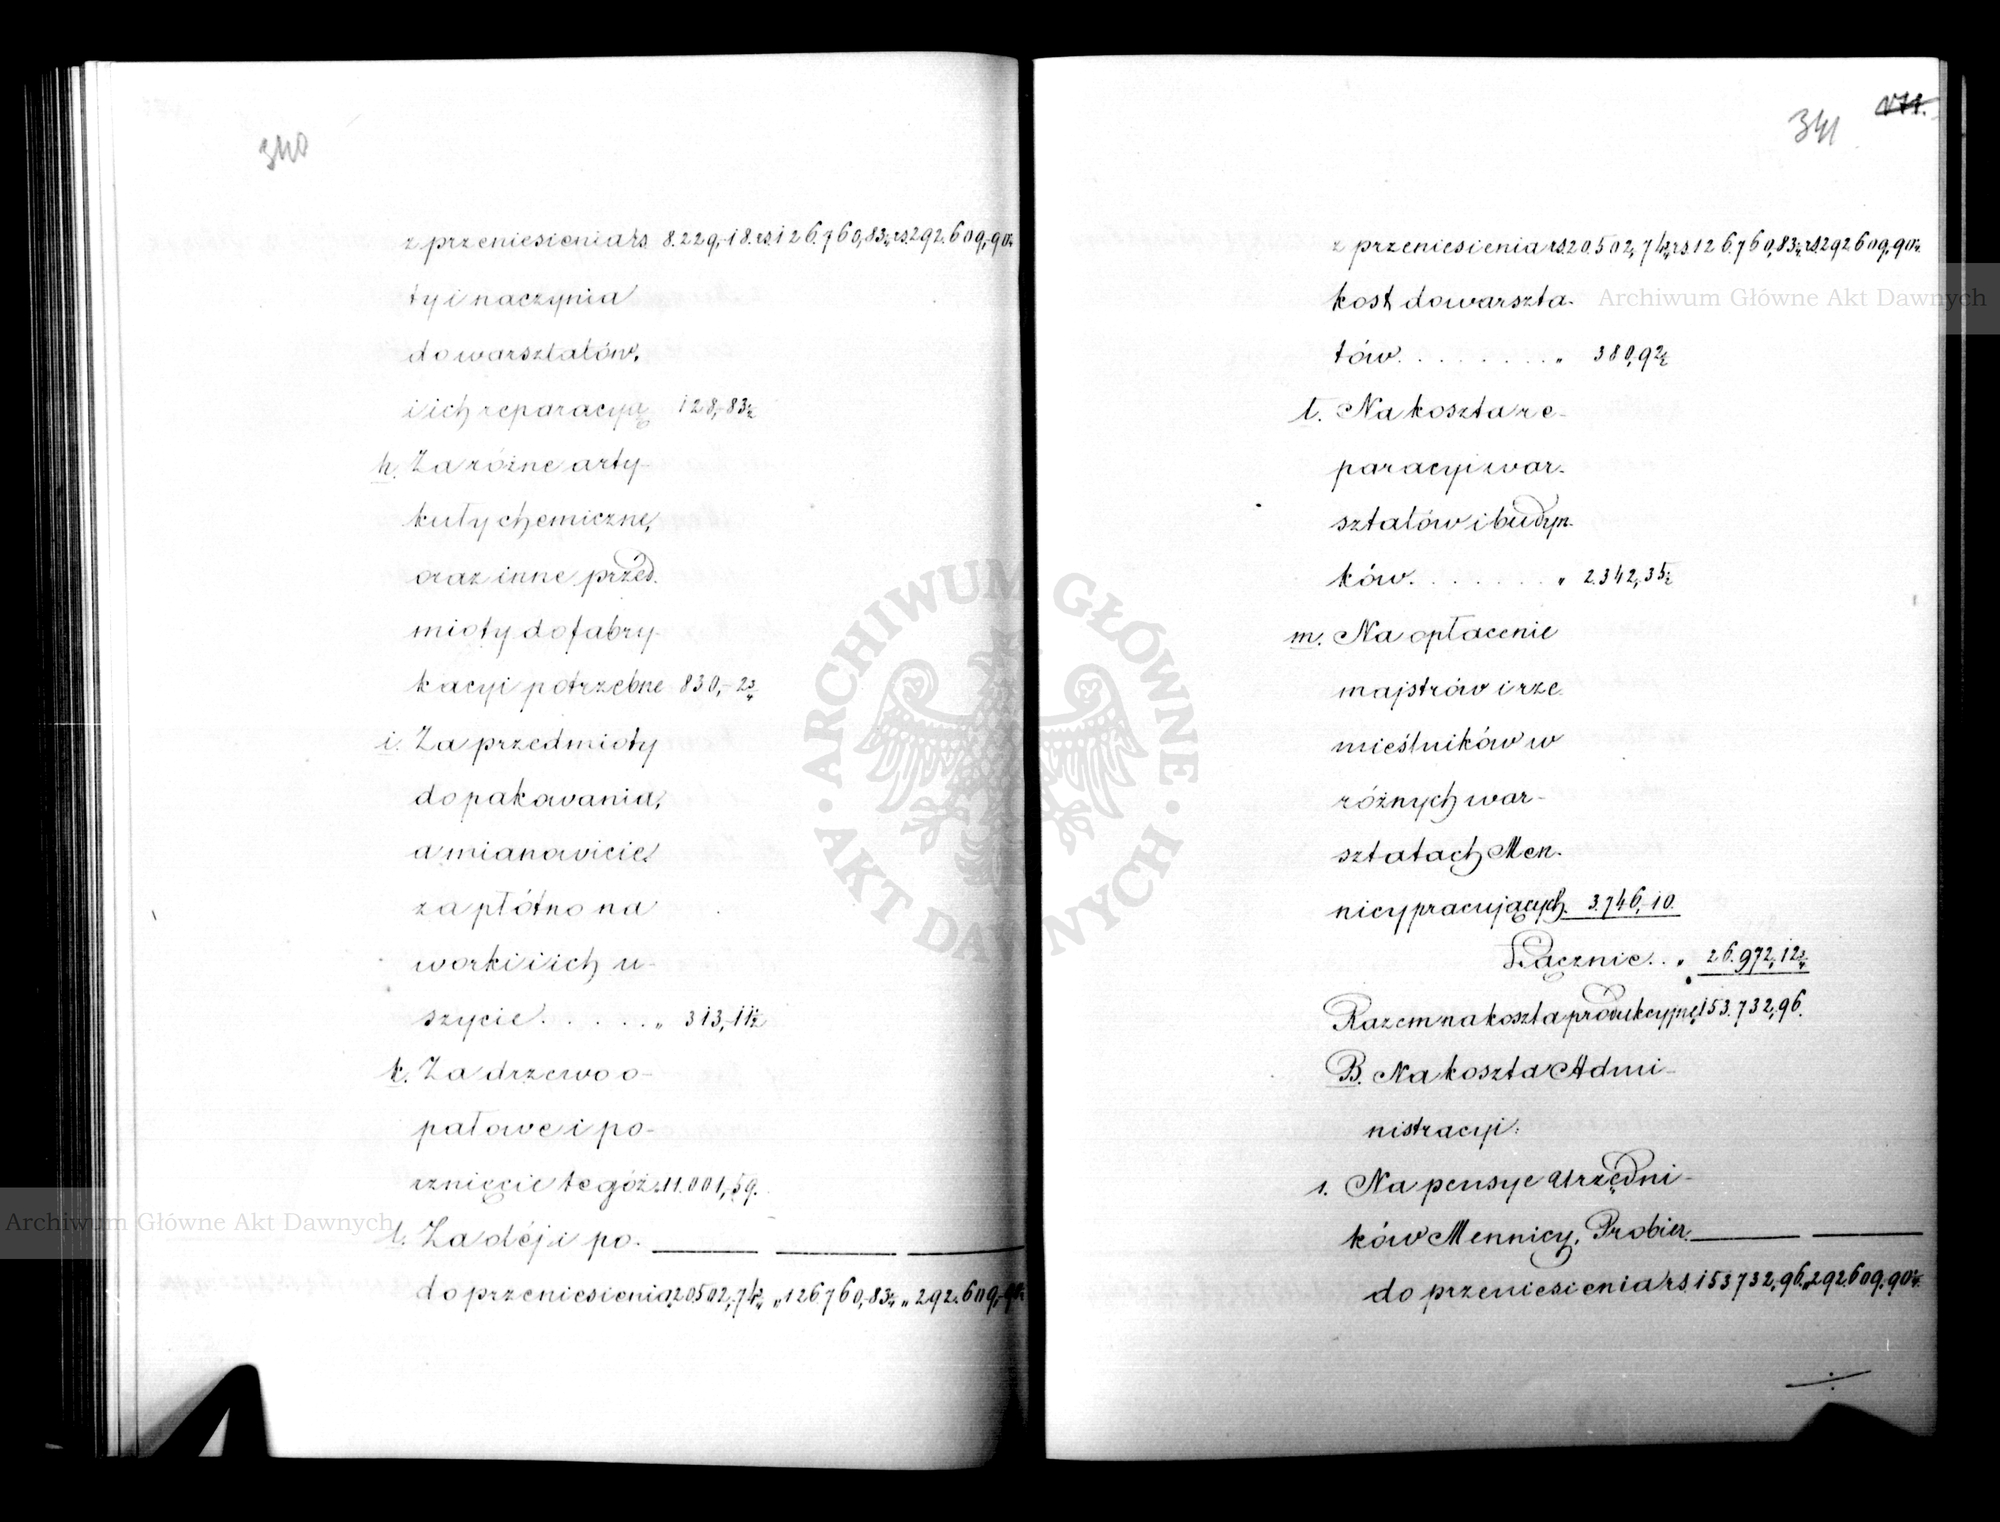 340
z przeniesienia rs. 8.229,-18. rs. 126.760,83¼ rs. 292.609,-90¼
ty i naczynia
do warsztatów,
i ich reparacyą 128,-83½
h. Za różne arty-
kuły chemiczne,
oraz inne przed-
mioty do fabry-
kacyi potrzebne 830,-2¾
i. Za przedmioty
do pakowania,
a mianowicie,
za płótno na
worki i ich u-
szycie . . . . . . „ 313,-11½
k. Za drzewo o-
pałowe i po-
rznięcie tegóż „11.001,59.
l. Za oléj i po-
do przeniesienia „20502,-74¾ „ 126760,83¼ „ 292.609,-90¼
341
171.
z przeniesienia rs. 20.502,74¾ rs. 126.760,83¼ rs. 292609,90¼
kost do warszta-
tów . . . . . . . . „ 380,92½
ł. Na koszta re-
paracyi war-
sztatów i budyn-
ków . . . . . . . „ 2.342,35½
m. Na opłacenie
majstrów i rze-
mieślników w
różnych war-
sztatach Men-
nicy pracujących. 3.746,-10.
Łącznie . . „ 26.972,12¾
Razem na koszta produkcyjne 153.732,96.
B. Na koszta Admi-
nistracyi:
1. Na pensye Urzędni-
ków Mennicy, Probier-
do przeniesienia rs. 153732,-96. „292.609,-90¼
Archiwum Główne Akt Dawnych
Archiwum Główne Akt Dawnych
ARCHIWUM GŁÓWNE
AKT DAWNYCH